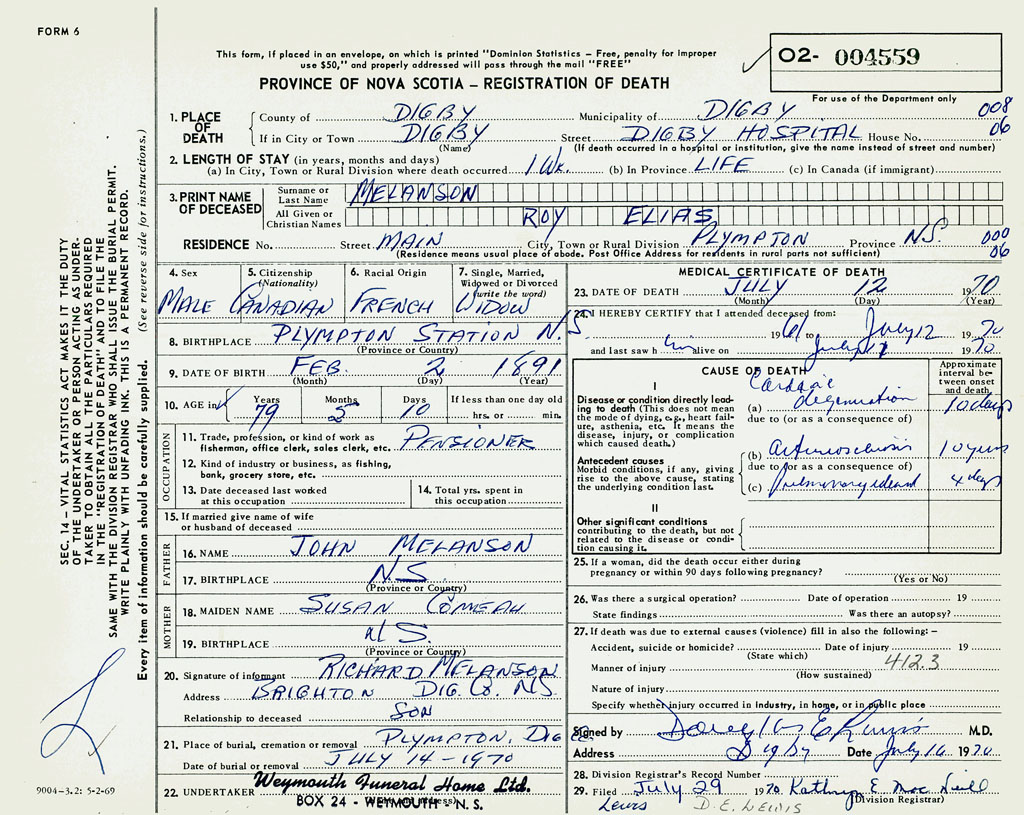 FORM 6
This form, if placed in an envelope, on which is printed "Dominion Statistics – Free, penalty for improper
use $50," and properly addressed will pass through the mail "FREE"
O2- 004559
For use of the Department only
PROVINCE OF NOVA SCOTIA – REGISTRATION OF DEATH
1. PLACE OF DEATH County of DIGBY Municipality of DIGBY 008
If in City or Town DIGBY Street DIGBY HOSPITAL House No. 06
(Name) (If death occurred in a hospital or institution, give the name instead of street and number)
2. LENGTH OF STAY (in years, months and days)
(a) In City, Town or Rural Division where death occurred 1 Wk. (b) In Province LIFE (c) In Canada (if immigrant)
3. PRINT NAME OF DECEASED Surname or Last Name MELANSON
All Given or Christian Names ROY ELIAS
RESIDENCE No. Street MAIN City, Town or Rural Division PLYMPTON Province N.S. 000
(Residence means usual place of abode. Post Office Address for residents in rural parts not sufficient) 06
4. Sex MALE
5. Citizenship (Nationality) CANADIAN
6. Racial Origin FRENCH
7. Single, Married, Widowed or Divorced (write the word) WIDOW
8. BIRTHPLACE PLYMPTON STATION N.S.
(Province or Country)
9. DATE OF BIRTH FEB 2 1891
(Month) (Day) (Year)
10. AGE in Years Months Days If less than one day old
79 5 10 hrs. or min.
OCCUPATION
11. Trade, profession, or kind of work as
fisherman, office clerk, sales clerk, etc. PENSIONER
12. Kind of industry or business, as fishing,
bank, grocery store, etc.
13. Date deceased last worked
at this occupation
14. Total yrs. spent in
this occupation
15. If married give name of wife
or husband of deceased
FATHER
16. NAME JOHN MELANSON
17. BIRTHPLACE N.S.
(Province or Country)
MOTHER
18. MAIDEN NAME SUSAN COMEAU
19. BIRTHPLACE N.S.
(Province or Country)
20. Signature of informant RICHARD MELANSON
Address BRIGHTON DIG. Co. N.S.
Relationship to deceased SON
21. Place of burial, cremation or removal PLYMPTON, DIG Co
Date of burial or removal JULY 14 - 1970
22. UNDERTAKER Weymouth Funeral Home Ltd.
BOX 24 - WEYMOUTH N.S.
MEDICAL CERTIFICATE OF DEATH
23. DATE OF DEATH JULY 12 1970
(Month) (Day) (Year)
24. I HEREBY CERTIFY that I attended deceased from:
1961 to July 12 1970
and last saw him alive on July 1970
CAUSE OF DEATH
Approximate interval between onset and death.
I
Disease or condition directly leading to death (This does not
mean the mode of dying, e.g., heart failure, asthenia, etc. It means the
disease, injury, or complication
which caused death.)
(a) Cardiac degeneration 10 days
due to (or as a consequence of)
Antecedent causes
Morbid conditions, if any, giving
rise to the above cause, stating
the underlying condition last.
(b) Arteriosclerosis 10 years
due to (or as a consequence of)
(c) Pulmonary 4 days
II
Other significant conditions
contributing to the death, but not
related to the disease or condition causing it.
25. If a woman, did the death occur either during
pregnancy or within 90 days following pregnancy?
(Yes or No)
26. Was there a surgical operation? Date of operation 19
State findings Was there an autopsy?
27. If death was due to external causes (violence) fill in also the following: –
Accident, suicide or homicide? Date of injury 19
(State which)
Manner of injury 412.3
(How sustained)
Nature of injury
Specify whether injury occurred in industry, in home, or in public place
Signed by M.D.
Address Digby Date July 1970
28. Division Registrar's Record Number
29. Filed July 29 1970 Kathryn E. MacNeill
Lewis D.E. LEWIS (Division Registrar)
SEC. 14 – VITAL STATISTICS ACT MAKES IT THE DUTY
OF THE UNDERTAKER OR PERSON ACTING AS UNDER-
TAKER TO OBTAIN ALL THE PARTICULARS REQUIRED
IN THE "REGISTRATION OF DEATH" AND TO FILE THE
SAME WITH THE DIVISION REGISTRAR WHO SHALL ISSUE THE BURIAL PERMIT.
WRITE PLAINLY WITH UNFADING INK. THIS IS A PERMANENT RECORD.
Every item of information should be carefully supplied. (See reverse side for instructions.)
9004–3.2: 5-2-69